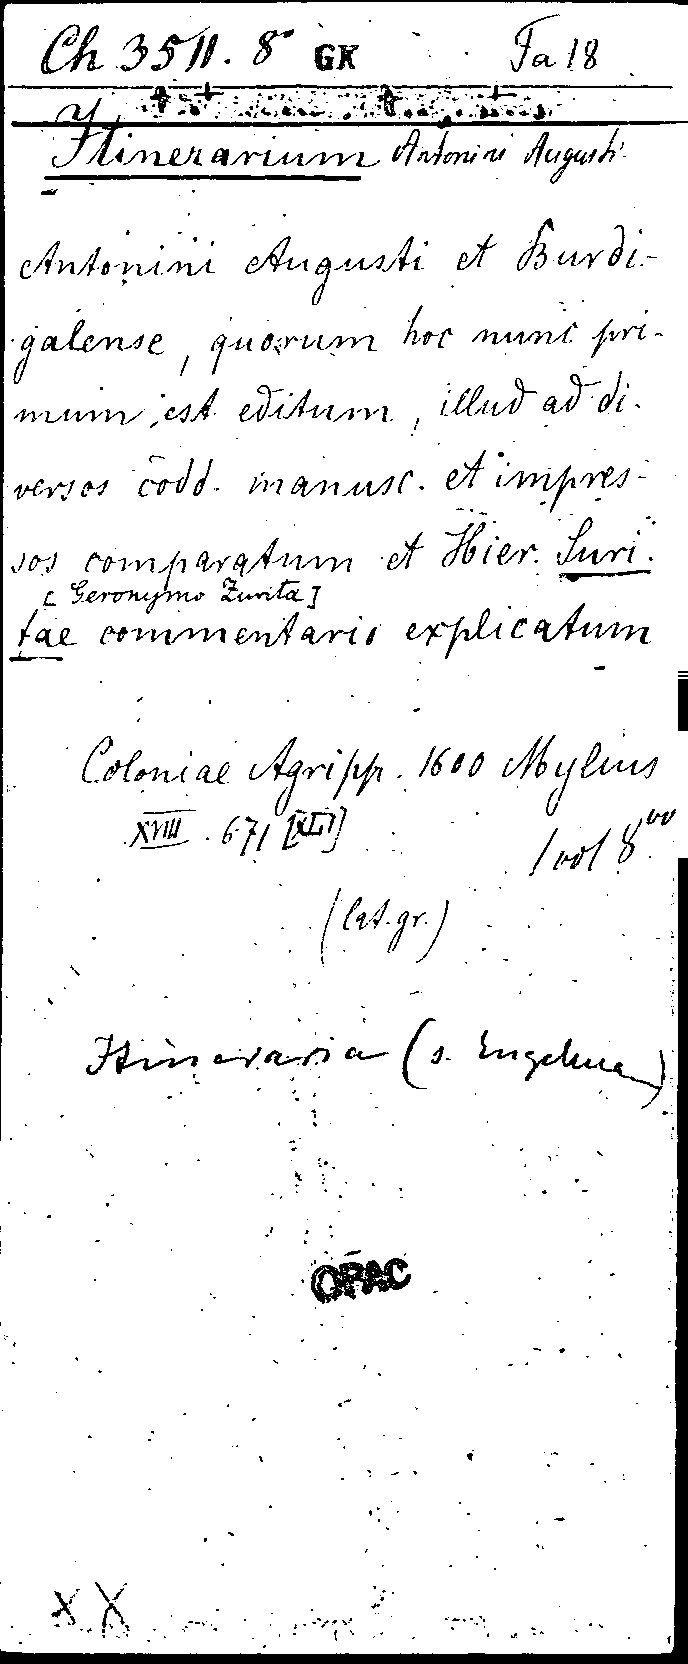 Ch 3511. 8° GK Fa 18
Itinerarium Antonini Augusti
Antonini Augusti et Burdi-
galense, quorum hoc nunc pri-
mum est editum, illud ad di-
versos codd. manusc. et impres-
sos comparatum et Hier. Suri-
[Geronymo Zurita]
tae commentario explicatum
Coloniae Agripp. 1600 Mylius
XVIII . 671 [XLI]
1 vol 8vo
(lat. gr.)
Itineraria (s.
OPAC
X X